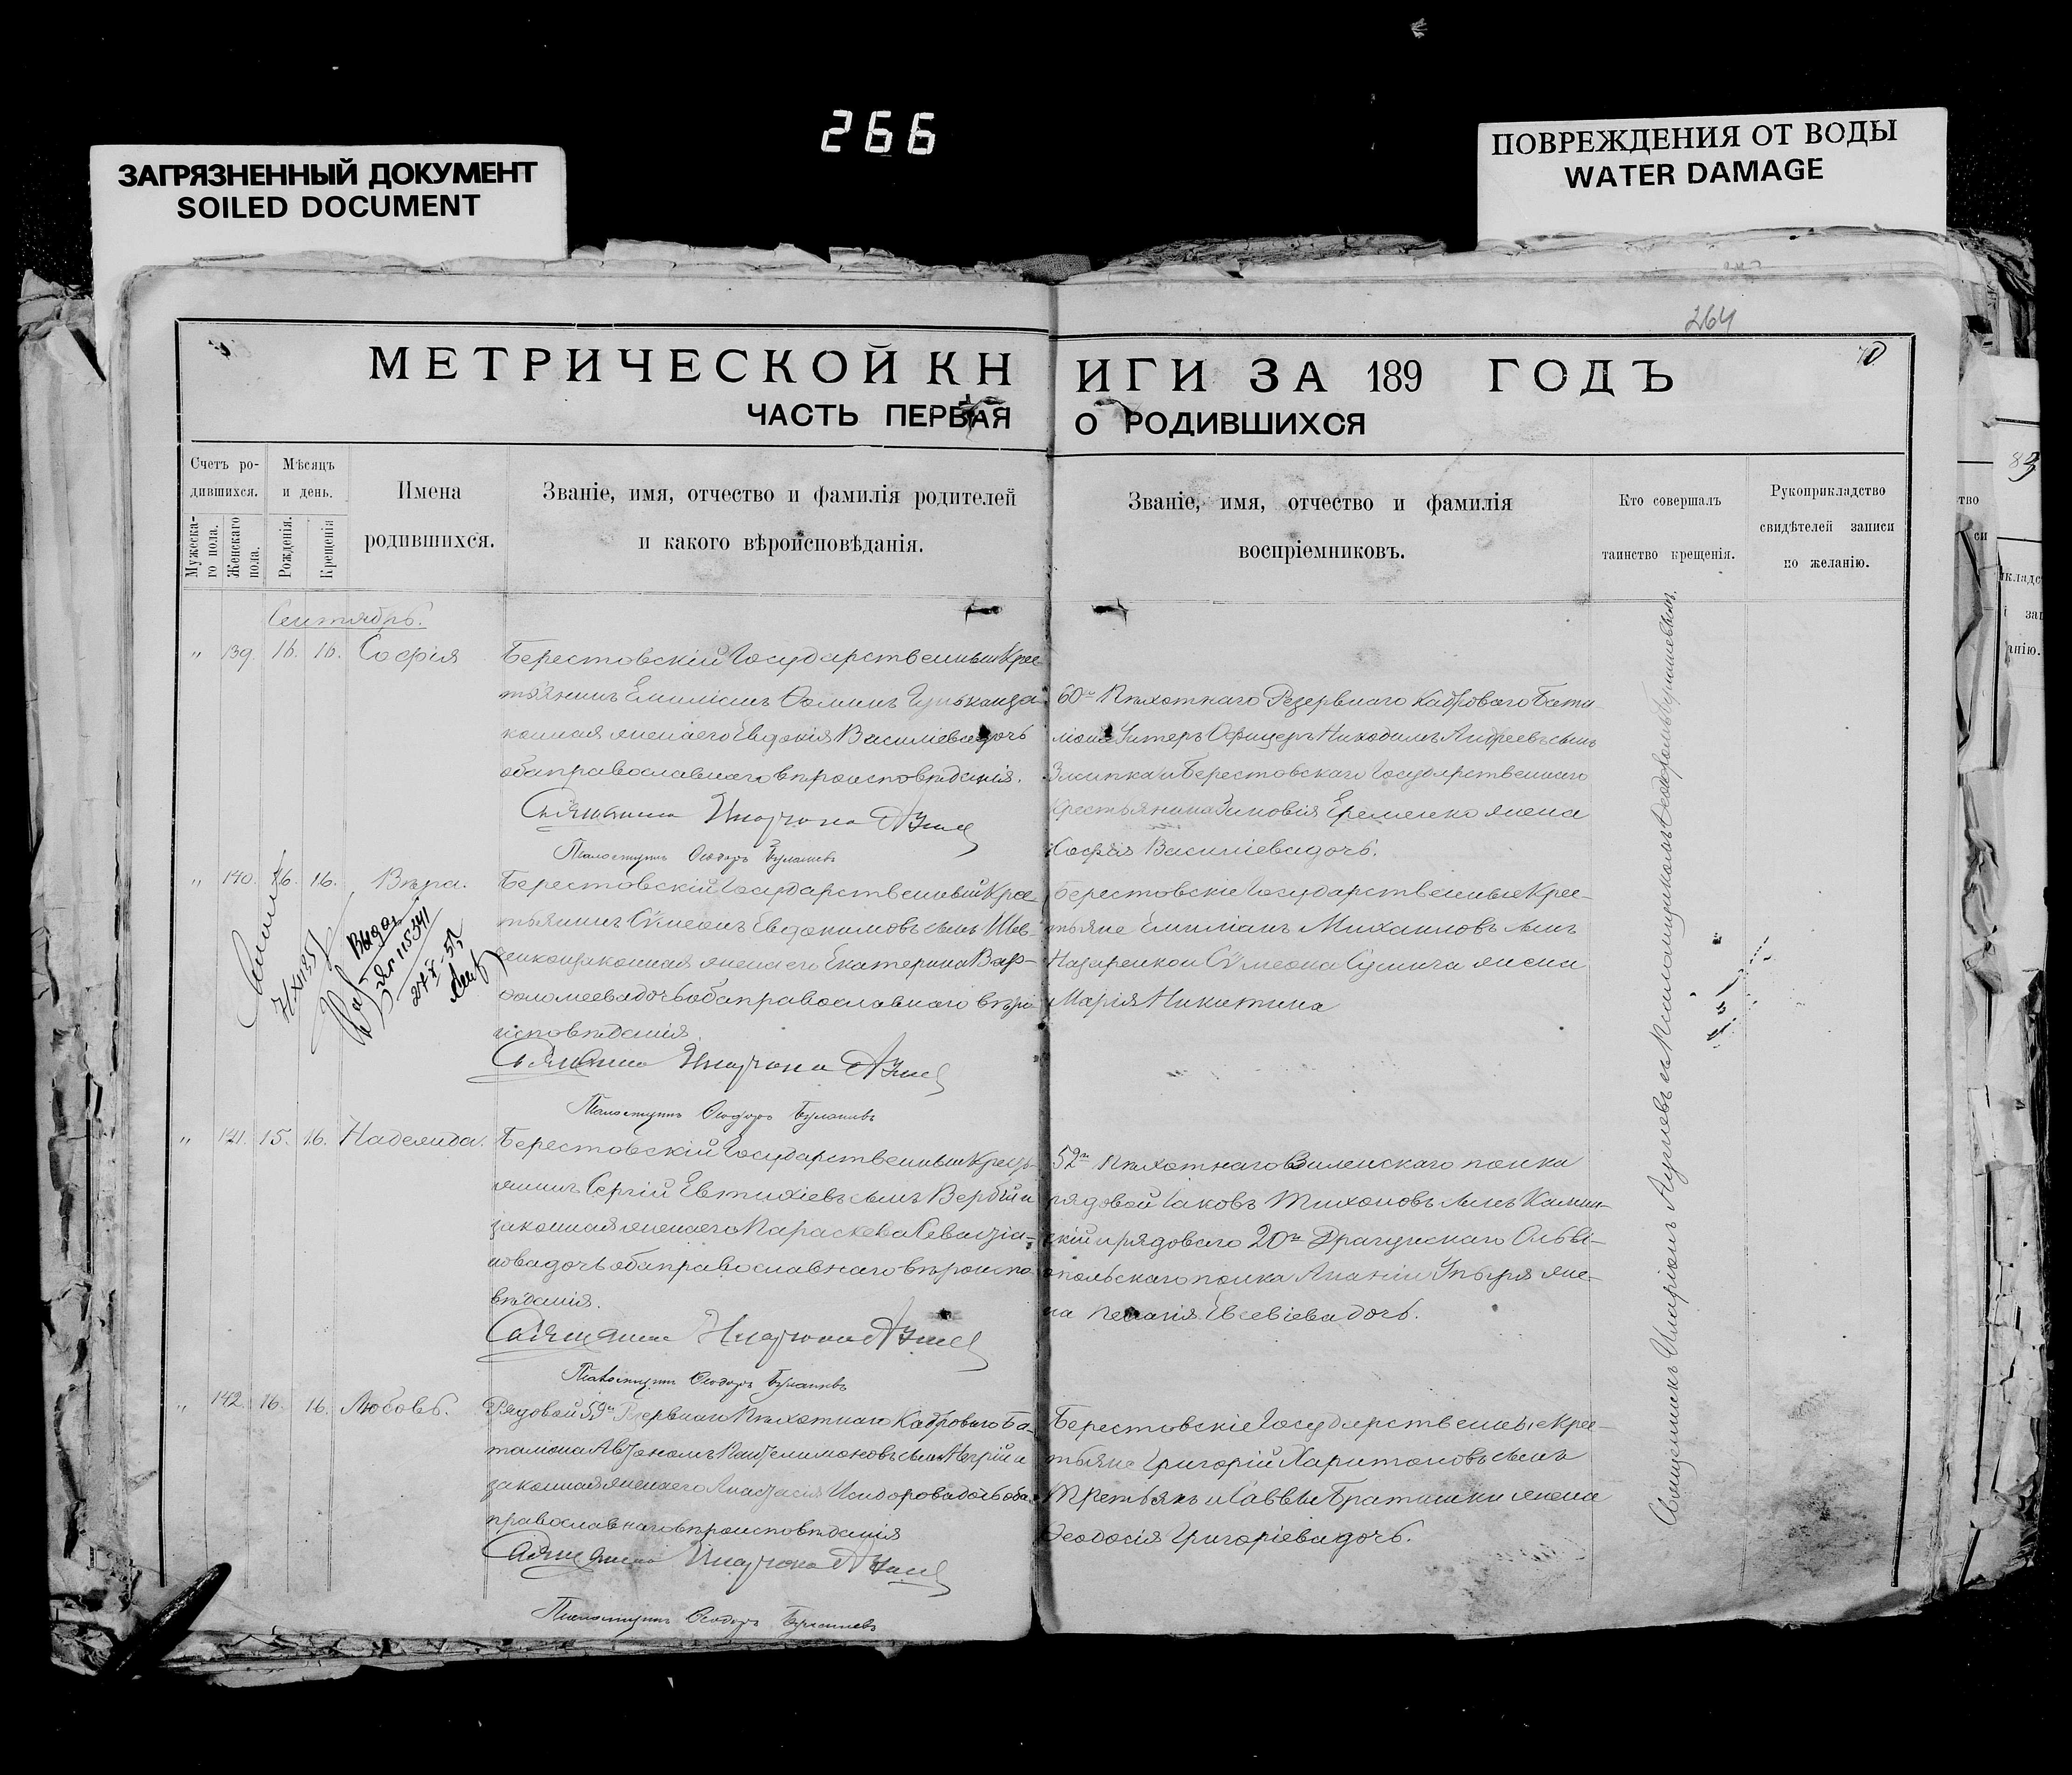 266
ЗАГРЯЗНЕННЫЙ ДОКУМЕНТ
SOILED DOCUMENT
ПОВРЕЖДЕНИЯ ОТ ВОДЫ
WATER DAMAGE
264
70
МЕТРИЧЕСКОЙ КНИГИ ЗА 189 ГОДЪ
ЧАСТЬ ПЕРВАЯ О РОДИВШИХСЯ
Счетъ ро-
дившихся.
Мужеска-
го пола.
Женскаго
пола.
Мѣсяцъ
и день.
Рожденія.
Крещенія
Имена
родившихся.
Званіе, имя, отчество и фамилія родителей
и какого вѣроисповѣданія.
Званіе, имя, отчество и фамилія
воспріемниковъ.
Кто совершалъ
таинство крещенія.
Рукоприкладство
свидѣтелей записи
по желанію.
Сентябрь.
" 139. 16. 16. Софія
Берестовскій Государственный Крес
тьянинъ Емиліанъ Ѳоминъ
конная жена его Евдокія Васильева дочь
оба православнаго вѣроисповѣданія.
Псаломщикъ Ѳеодоръ
60го Пѣхотнаго Резервнаго Кадроваго Бата
ліона Унтеръ Офицеръ Никодимъ Андреевъ сынъ
и Берестовскаго Государственнаго
Крестьянина Зиновія Еременко жена
Софія Василіева дочь.
" 140. 16. 16. Вѣра.
Берестовскій Государственный Крес-
тьянинъ Сѵмеонъ Евдокимовъ сынъ Шев-
ченко и законная жена его Екатерина Вар-
ѳоломеева дочь оба православнаго вѣро
исповѣданія
Псаломщикъ Ѳеодоръ
Берестовскіе Государственные Крес-
тьяне Емиліанъ Михаиловъ сынъ
Назаренко и Сѵмеона жена
Марія Никитина
" 141. 15. 16. Надежда.
Берестовскій Государственный Кресть-
янинъ Сергій Евтихіевъ сынъ Вербій и
законная жена его Параскева Севастіа-
нова дочь оба православнаго вѣроиспо
вѣданія.
Псаломщикъ Ѳеодоръ
52го Пѣхотнаго Виленскаго полка
рядовой Іаковъ Тихоновъ сынъ Камин-
скій и рядоваго 20го Драгунскаго Ольві-
опольскаго полка Ананіи Упыря же-
на Пелагія Евсевіева дочь.
" 142. 16. 16. Любовь.
Рядовой 59го Резервнаго Пѣхотнаго Кадроваго Ба-
таліона Автономъ Пантелимоновъ сынъ Негрій и
законная жена его Анастасія Исидорова дочь оба
православнаго вѣроисповѣданія
Псаломщикъ Ѳеодоръ
Берестовскіе Государственные Крес-
тьяне Григорій Харитоновъ сынъ
Третьякъ и Саввы Браташки жена
Ѳеодосія Григоріева дочь.
Священникъ Иларіонъ съ Псаломщикомъ Ѳеодоромъ